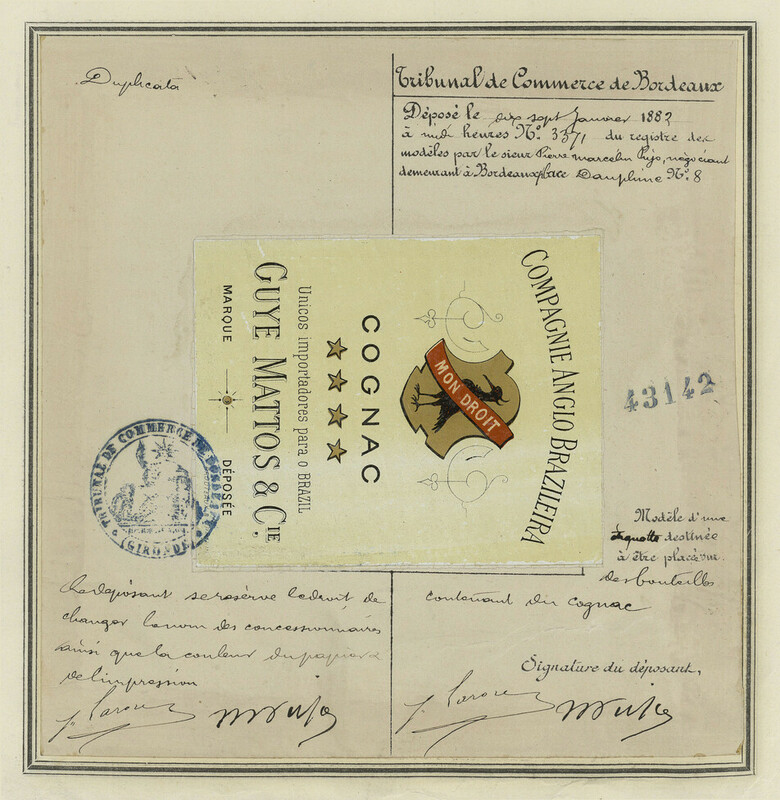 Duplicata
Tribunal de Commerce de Bordeaux
Déposé le dix sept Janvier 1882
à midi heures N° 3371 du registre des
modèles par le sieur Pierre Marcelin négociant
demeurant à Bordeaux place Dauphine N° 8
COMPAGNIE ANGLO BRAZILEIRA
MON DROIT
COGNAC
Unicos importadores para o BRAZIL
GUYE MATTOS & CIE.
MARQUE DÉPOSÉE
43142
TRIBUNAL DE COMMERCE DE BORDEAUX
(GIRONDE)
Modèle d'une
étiquette destinée
à être placée sur
des bouteilles
contenant du cognac
Le déposant se réserve le droit de
changer le nom des concessionnaires
ainsi que la couleur du papier &
de l'impression
Signature du déposant,